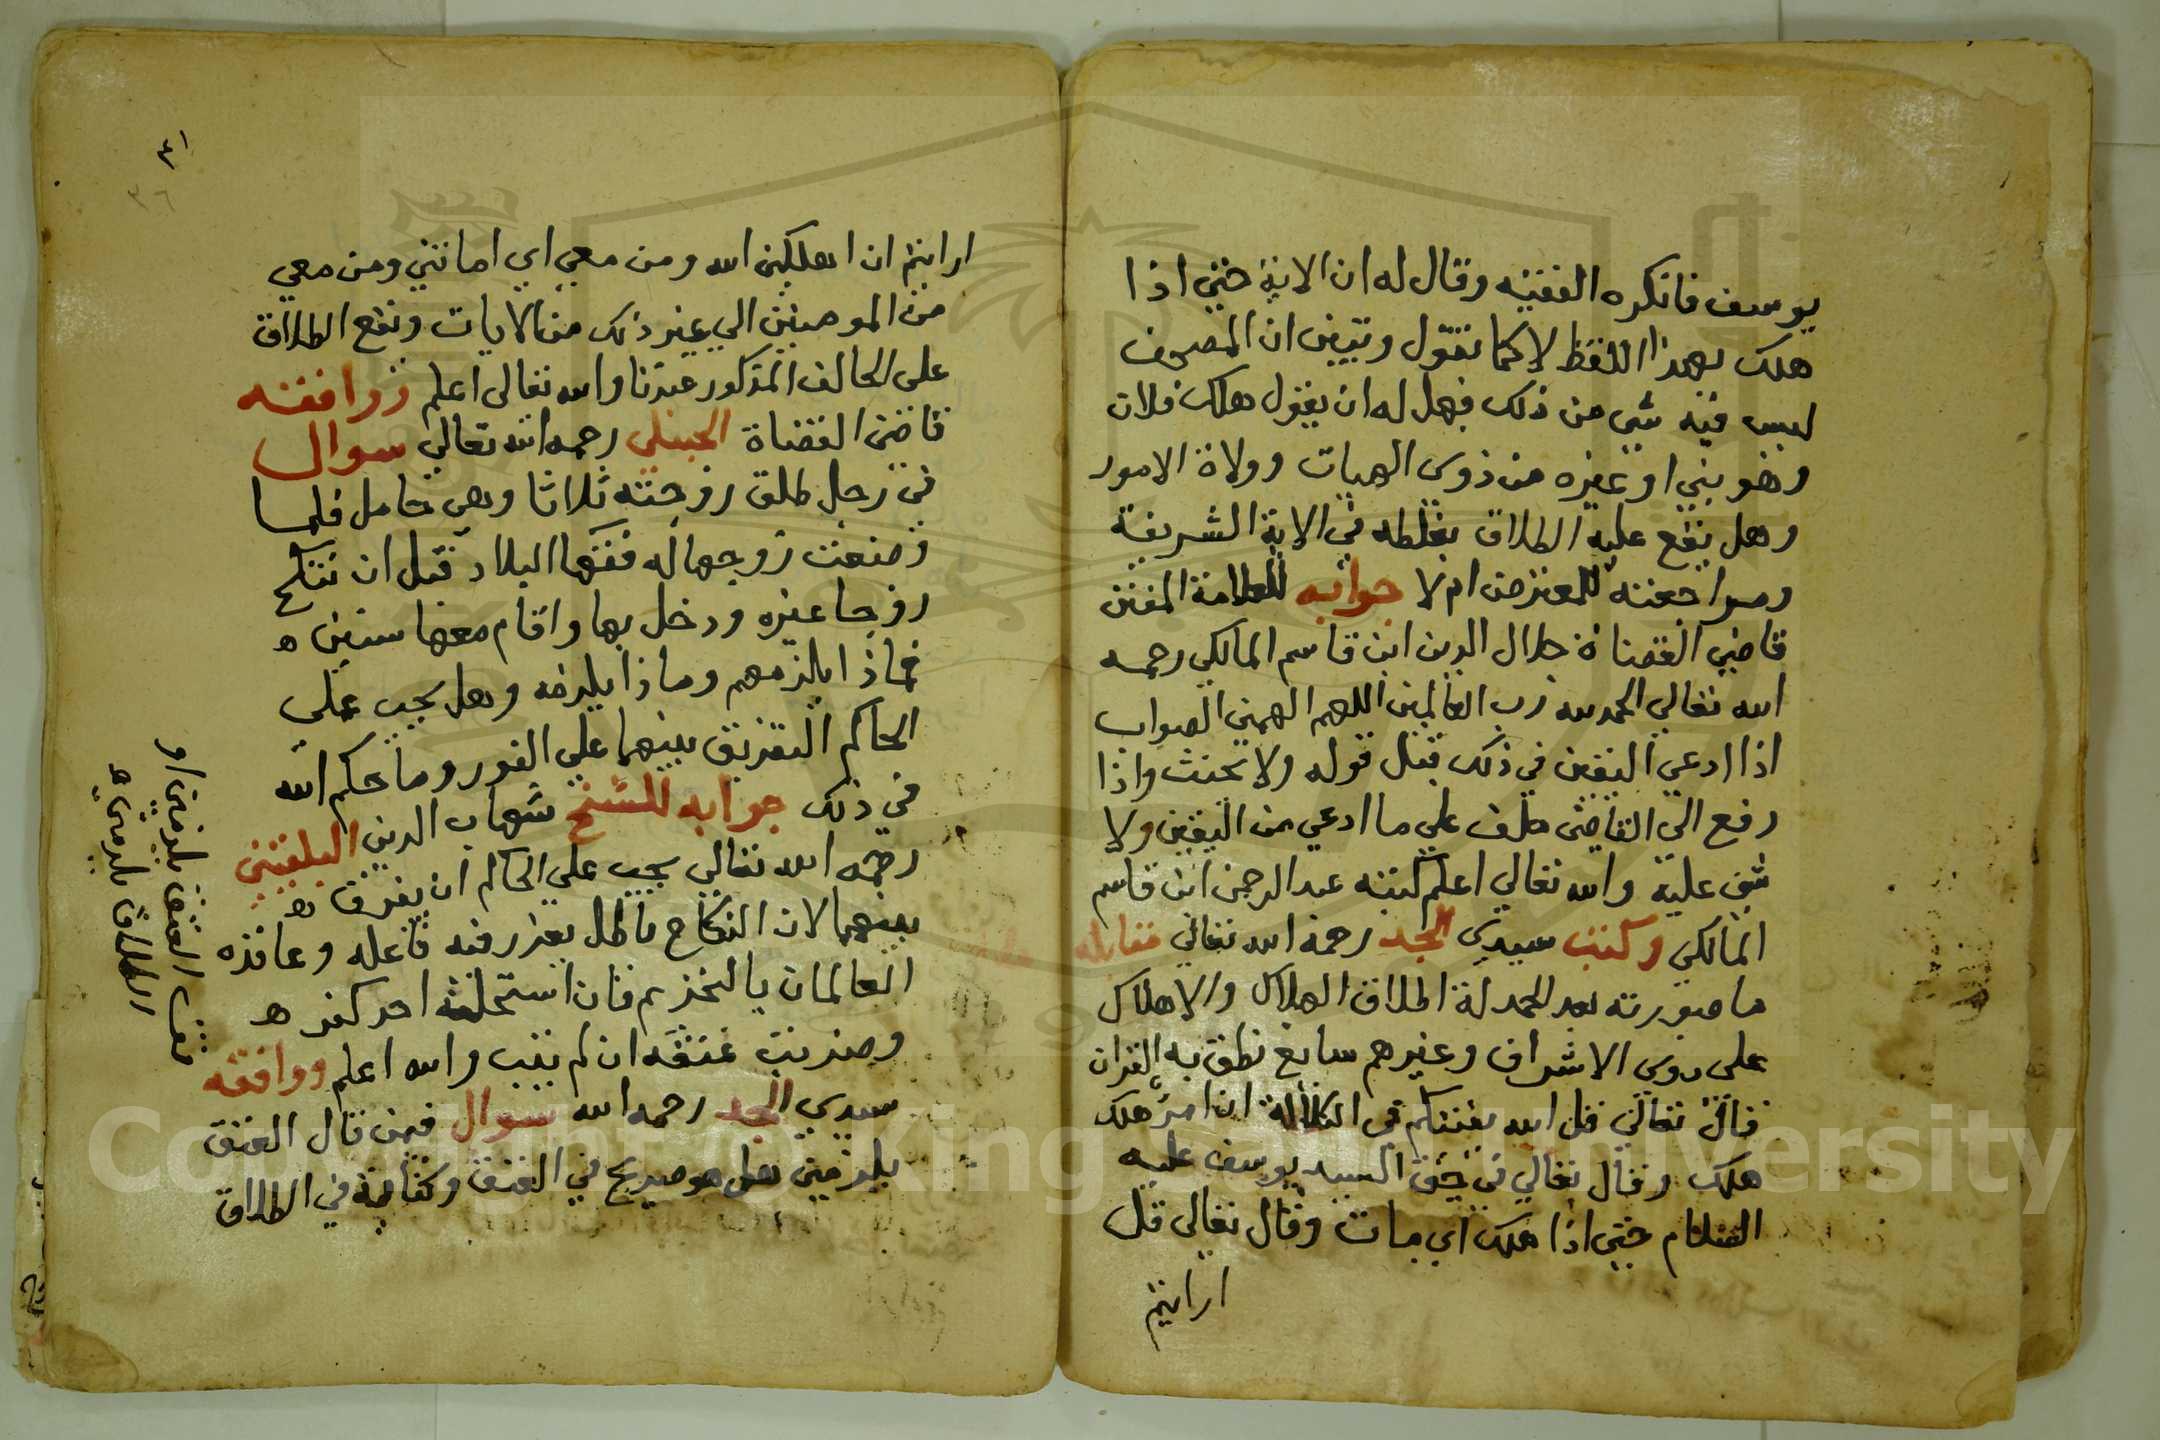 يوسف فانكره الفقيه وقال له ان الاية حتي اذا
هلك بهذا اللفظ لا كما تقول وتيقن ان المصحف
ليس فيه شي من ذلك فهل له ان يقول هلك فلان
وهو نبي او غيره من ذوي الهيات وولاة الامور
وهل يقع عليه الطلاق بغلطه في الاية الشريفة
ومراجعته للمعترض ام لا جوابه للعلامة المفنن
قاضي القضاة جلال الدين ابن قاسم المالكي رحمه
الله تعالي الحمد لله رب العالمين اللهم الهمني الصواب
اذا ادعي اليقين في ذلك قبل قوله ولا يحنث واذا
رفع الي القاضي حلف علي ما ادعي من اليقين ولا
شي عليه والله تعالي اعلم كتبه عبد الرحمن ابن قاسم
المالكي وكتب سيدي الجد رحمه الله تعالي مقابله
ما صورته بعد الحمدلة اطلاق الهلاك والاهلاك
على ذوي الاشراف وغيرهم سايغ نطق به القران
قال تعالي قل الله يفتيكم في الكلالة ان امرؤ هلك
هلك وقال تعالي في حق السيد يوسف عليه
السلام حتي اذا هلك اي مات وقال تعالي قل
ارايتم
٤١
٣٦
ارايتم ان اهلكني الله ومن معي اي اماتني ومن معي
من المومنين الي غير ذلك من الايات وتقع الطلاق
على الحالف المذكور عندنا والله تعالى اعلم ووافقه
قاضي القضاة الحنبلي رحمه الله تعالي سوال
في رجل طلق زوجته ثلاثا وهي حامل فلما
وضعت زوجها له فقها البلاد قبل ان تنكح
زوجا غيره ودخل بها واقام معها سنين ه
فماذا يلزمهم وماذا يلزمه وهل يجب علي
الحاكم التفريق بينهما علي الفور وما حكم الله
في ذلك جوابه للشيخ شهاب الدين البلقيني
رحمه الله تعالي يجب علي الحاكم ان يفرق ه
بينهما لان النكاح باطل يعزر فيه فاعله وعاقده
العالمان بالتحريم فان استحلته احد كفر ه
وضربت عنقه ان لم يتب والله اعلم ووافقه
سيدي الجد رحمه الله سوال فيمن قال العتق
يلزمني هل هو صريح في العتق وكناية في الطلاق
العتق يلزمني او
الطلاق يلزمني ه